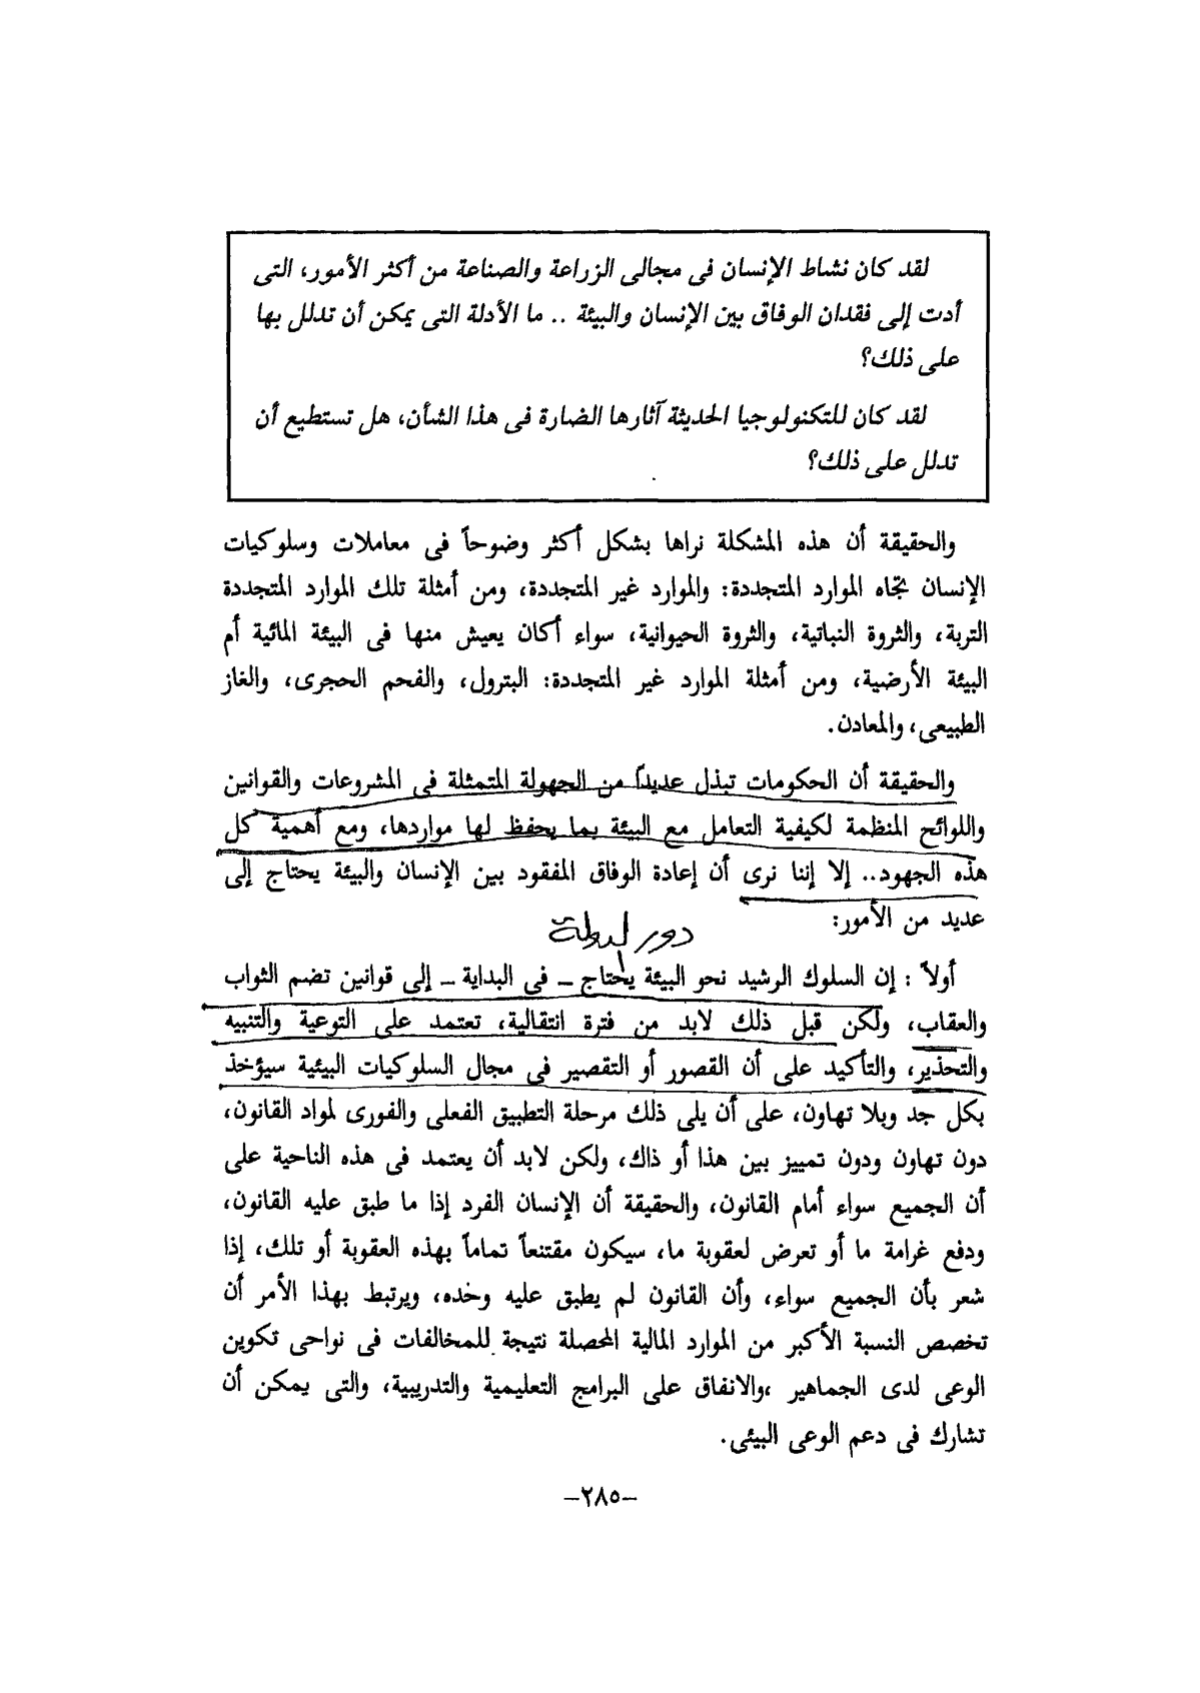 لقد كان نشاط الإنسان فى مجالى الزراعة والصناعة من أكثر الأمور، التى
أدت إلى فقدان الوفاق بين الإنسان والبيئة .. ما الأدلة التى يمكن أن تدلل بها
على ذلك؟
لقد كان للتكنولوجيا الحديثة آثارها الضارة فى هذا الشأن، هل تستطيع أن
تدلل على ذلك؟
والحقيقة أن هذه المشكلة نراها بشكل أكثر وضوحاً فى معاملات وسلوكيات
الإنسان تجاه الموارد المتجددة: والموارد غير المتجددة، ومن أمثلة تلك الموارد المتجددة
التربة، والثروة النباتية، والثروة الحيوانية، سواء أكان يعيش منها فى البيئة المائية أم
البيئة الأرضية، ومن أمثلة الموارد غير المتجددة: البترول، والفحم الحجرى، والغاز
الطبيعى، والمعادن.
والحقيقة أن الحكومات تبذل عديداً من الجهولة المتمثلة فى المشروعات والقوانين
واللوائح المنظمة لكيفية التعامل مع البيئة بما يحفظ لها مواردها، ومع أهمية كل
هذه الجهود.. إلا إننا نرى أن إعادة الوفاق المفقود بين الإنسان والبيئة يحتاج إلى
عديد من الأمور:
دور لدولة
أولاً : إن السلوك الرشيد نحو البيئة يحتاج – فى البداية – إلى قوانين تضم الثواب
والعقاب، ولكن قبل ذلك لابد من فترة انتقالية، تعتمد على التوعية والتنبيه
والتحذير، والتأكيد على أن القصور أو التقصير فى مجال السلوكيات البيئية سيؤخذ
بكل جد وبلا تهاون، على أن يلى ذلك مرحلة التطبيق الفعلى والفورى لمواد القانون،
دون تهاون ودون تمييز بين هذا أو ذاك، ولكن لابد أن يعتمد فى هذه الناحية على
أن الجميع سواء أمام القانون، والحقيقة أن الإنسان الفرد إذا ما طبق عليه القانون،
ودفع غرامة ما أو تعرض لعقوبة ما، سيكون مقتنعاً تماماً بهذه العقوبة أو تلك، إذا
شعر بأن الجميع سواء، وأن القانون لم يطبق عليه وحده، ويرتبط بهذا الأمر أن
تخصص النسبة الأكبر من الموارد المالية المحصلة نتيجة للمخالفات فى نواحى تكوين
الوعى لدى الجماهير ،والانفاق على البرامج التعليمية والتدريبية، والتى يمكن أن
تشارك فى دعم الوعى البيئى.
–٢٨٥–